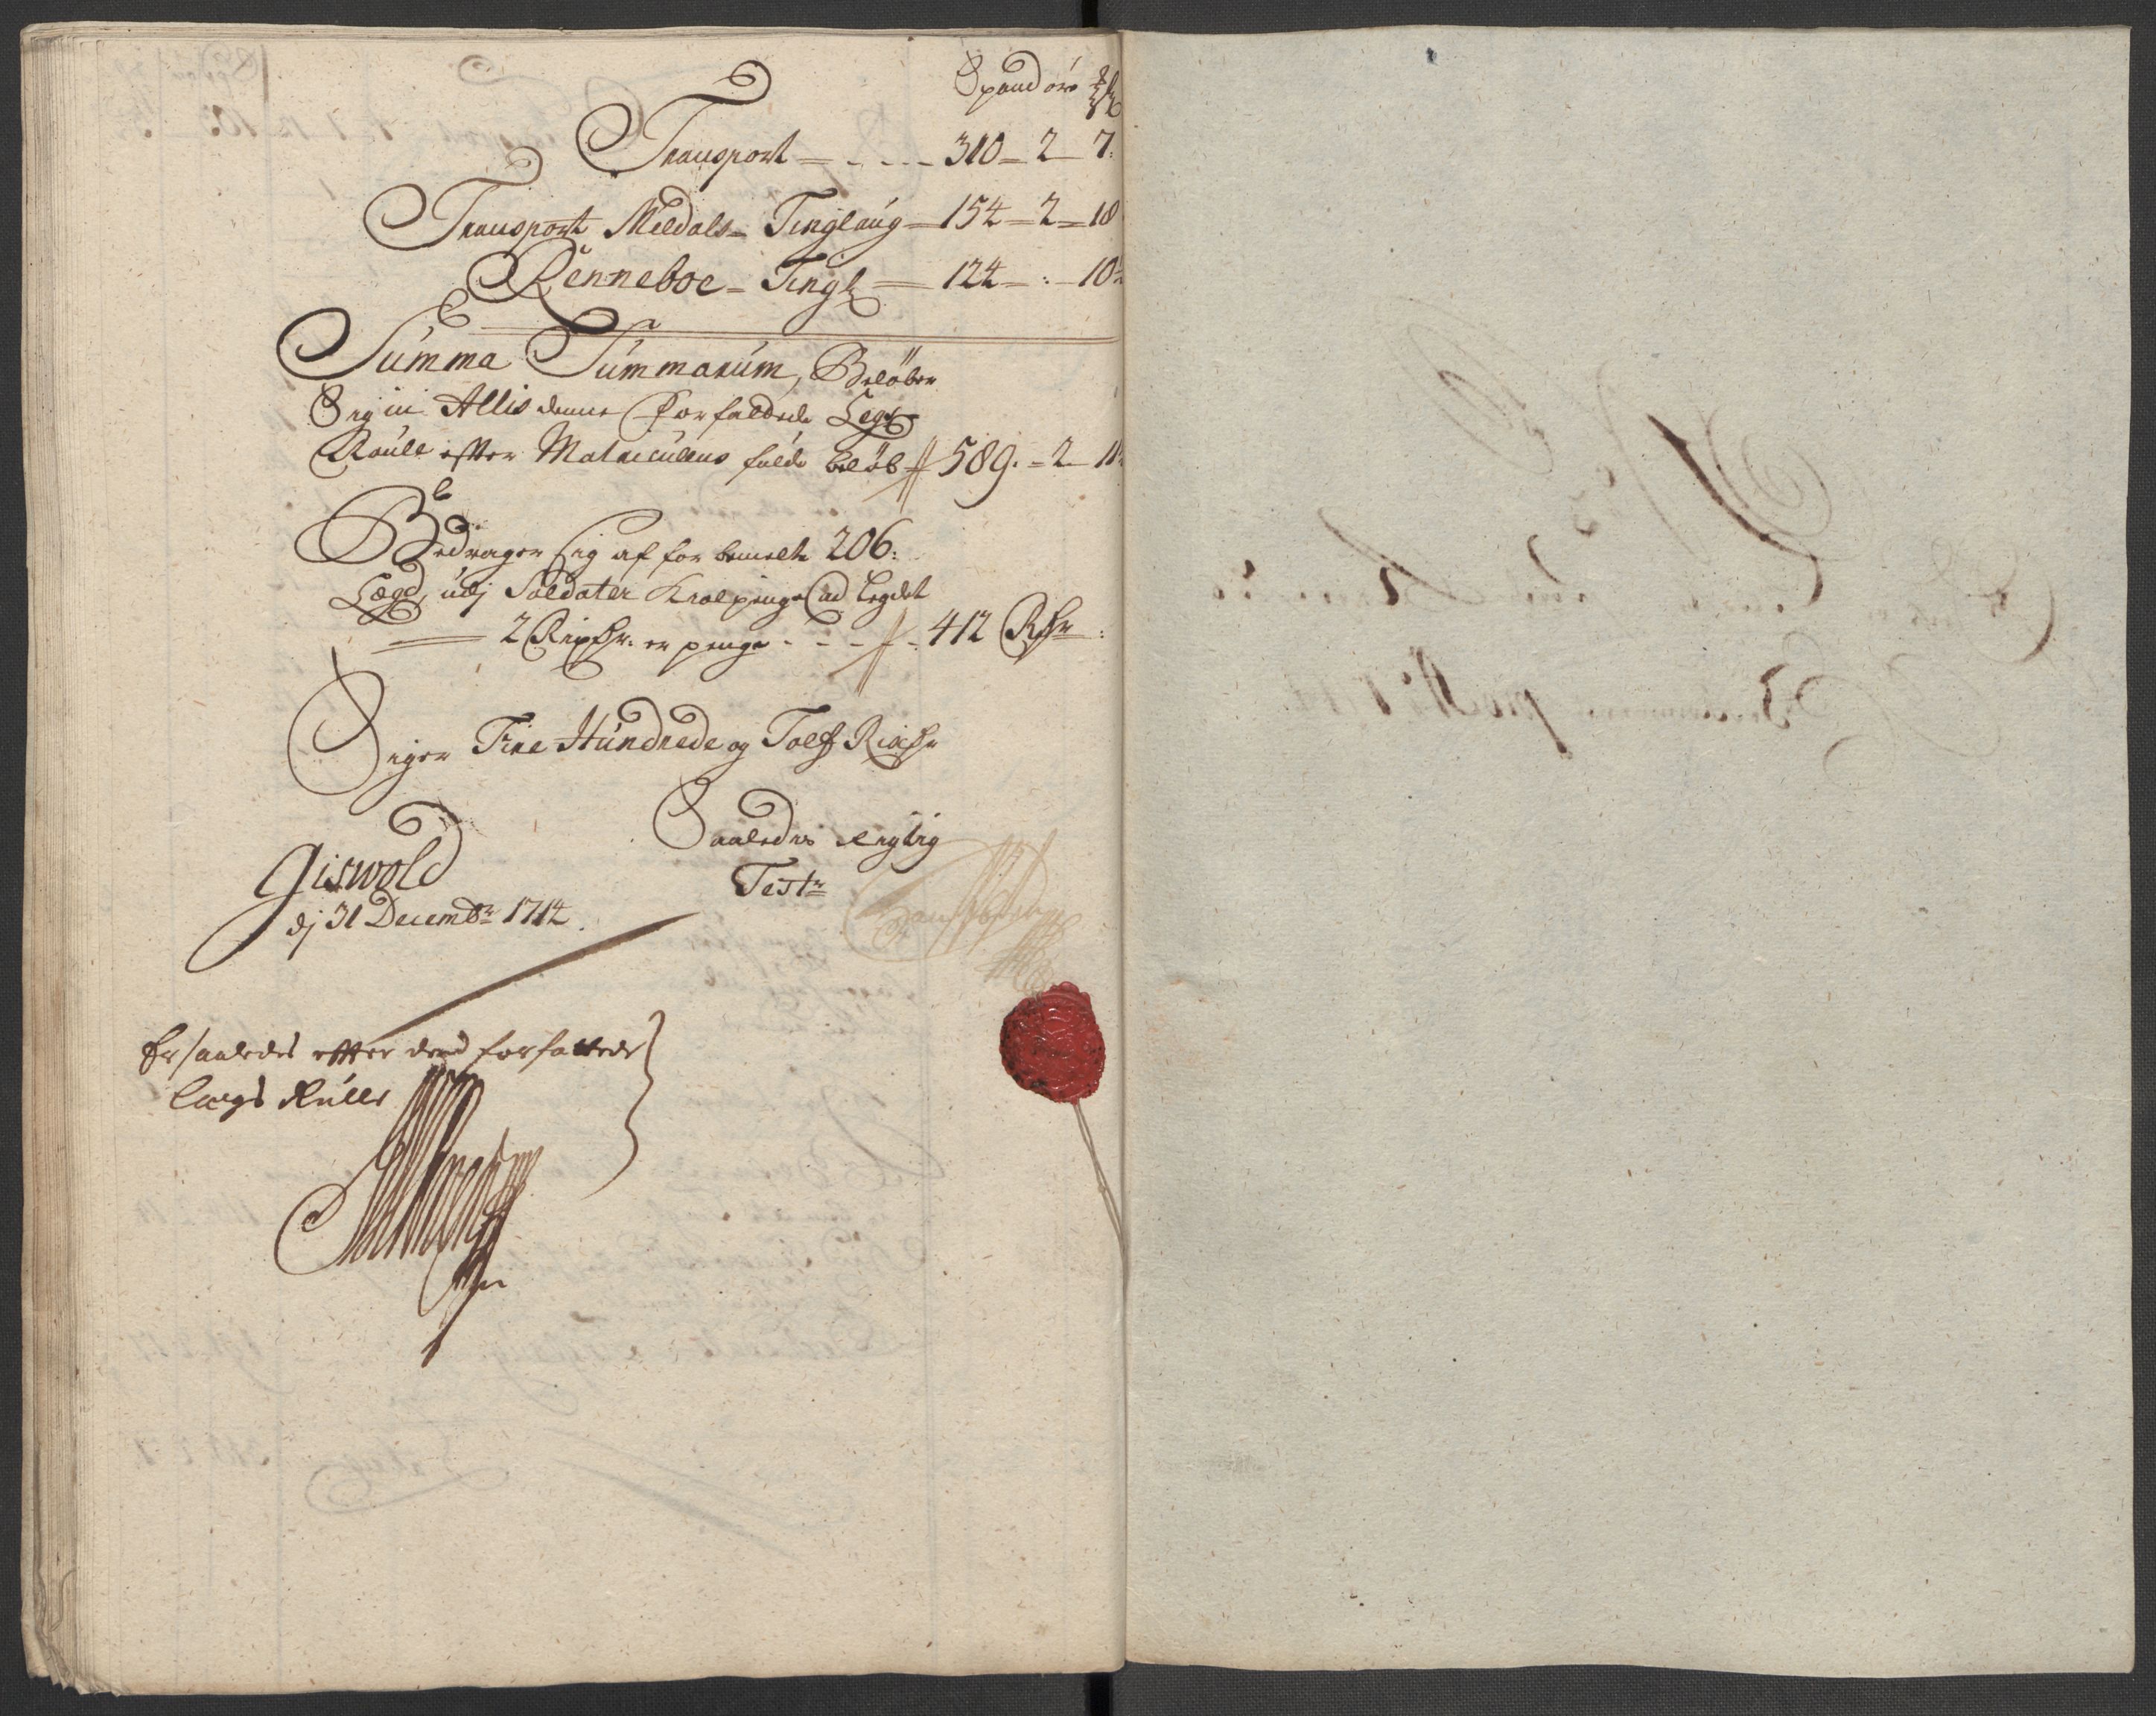 Spand øre
Transport - - - - 310 - 2 - 7:
Transport Meldals - Tinglaug - 154 - 2 - 18
Renneboe - Tingl - 124 - : - 10
Summa Summarum, Beløber
Sig in Allis denne Forfattede Legs
Roulle efter Matriculens fulde beløb 589. - 2 - 11
Bedrager sig af for bemelte 206:
Lægd, udj Soldater penge ad legdet
2 Rixdr. er penge - - - 412 Rdr:
Siger Fire Hundrede og Tolf Rixdr
Saaledes rigtig
Giswold
Testr
dj 31 Decembr 1714.
Er saaledes efter dend forfattede
Lægs Rulle